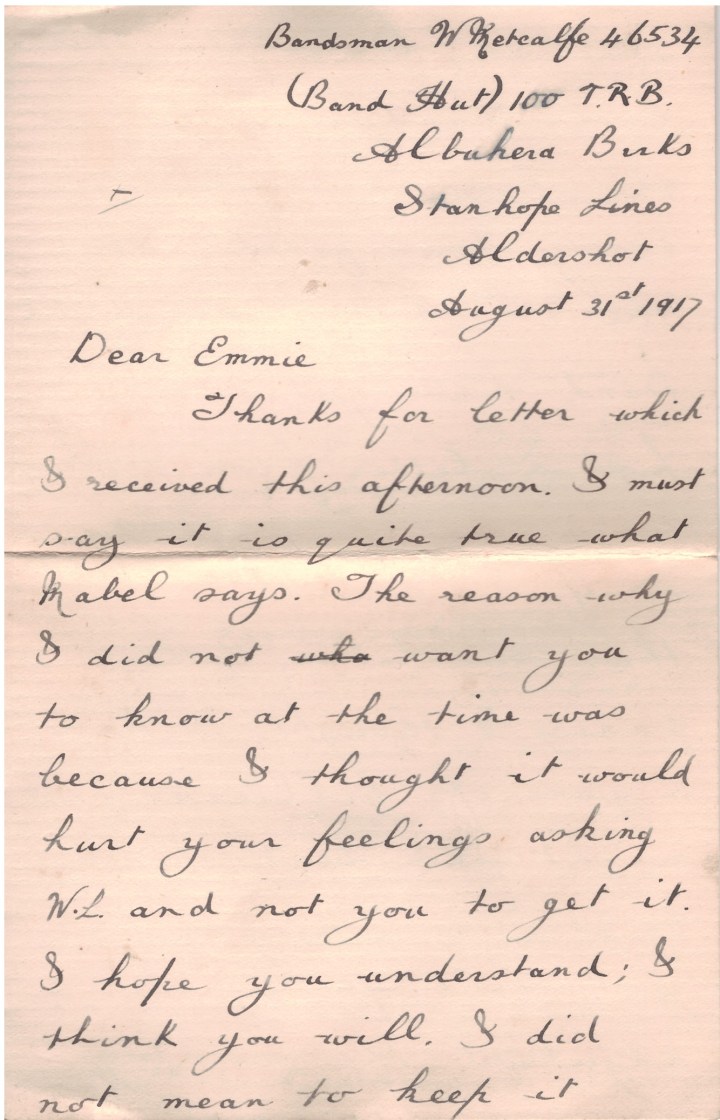 Bandsman W Metcalfe 46534
(Band Hut) 100 T.R.B.
Albuhera Brks
Stanhope Lines
Aldershot
August 31st 1917
Dear Emmie
Thanks for letter which
I received this afternoon. I must
say it is quite true what
Mabel says. The reason why
I did not wha want you
to know at the time was
because I thought it would
hurt your feelings asking
W.L. and not you to get it.
I hope you understand; I
think you will. I did
not mean to keep it